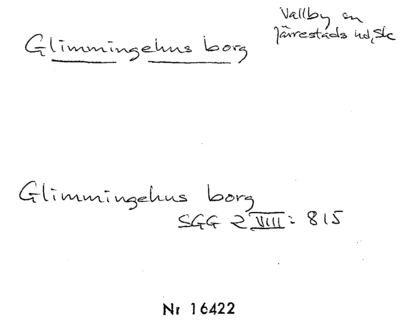 Vallby sn
Glimmingehus borg
Järrestads hd, Sk
Glimmingehus borg
SGG 2 VIII: 815
Nr 16422